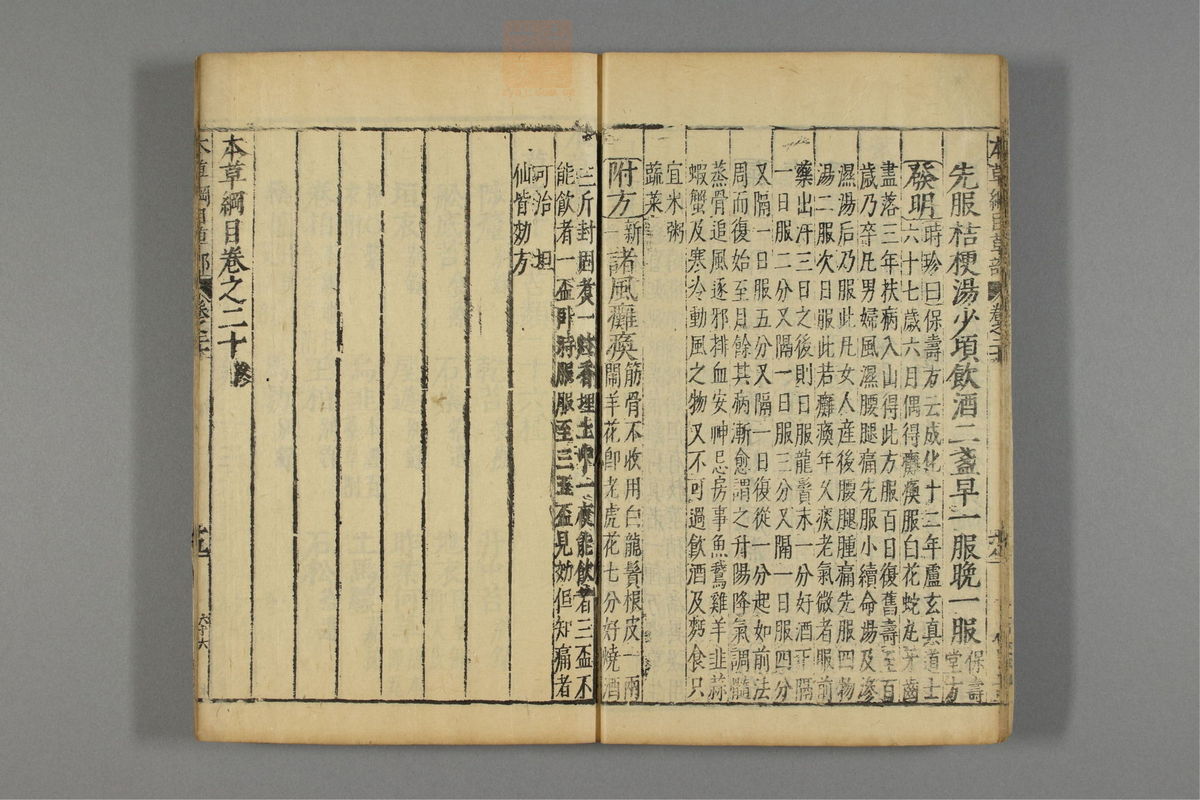 先服桔梗湯少頃飲酒二盞早一服晚一服保壽堂方
發明時珍曰保壽方云成化十二年盧玄真道士
六十七歲六月偶得癱瘓服白花蛇丸牙齒
盡落三年扶病入山得此方服百日復舊壽至百
歲乃卒凡男婦風濕腰腿痛先服小續命湯及滲
濕湯后乃服此凡女人産後腰腿腫痛先服四物
湯二服次日服此若癱瘓年久痰老氣微者服前
藥出汗三日之後則日服龍鬚末一分好酒下隔
一日服二分又隔一日服三分又隔一日服四分
又隔一日服五分又隔一日復從一分起如前法
周而復始至月餘其病漸愈謂之升陽降氣調髓
蒸骨追風逐邪排血安神忌房事魚鵞雞羊韭蒜
蝦蟹及寒冷動風之物又不可過飲酒及麪食只
宜米粥
蔬菜
附方新一諸風癱瘓筋骨不收用白龍鬚根皮一兩
鬧羊花即老虎花七分好燒酒
三斤封固煮一炷香埋土中一夜能飲者三盃不
能飲者一盃卧時服服至三五盃見効但知痛者
可治 坦
仙皆効方
本草綱目卷之二十終